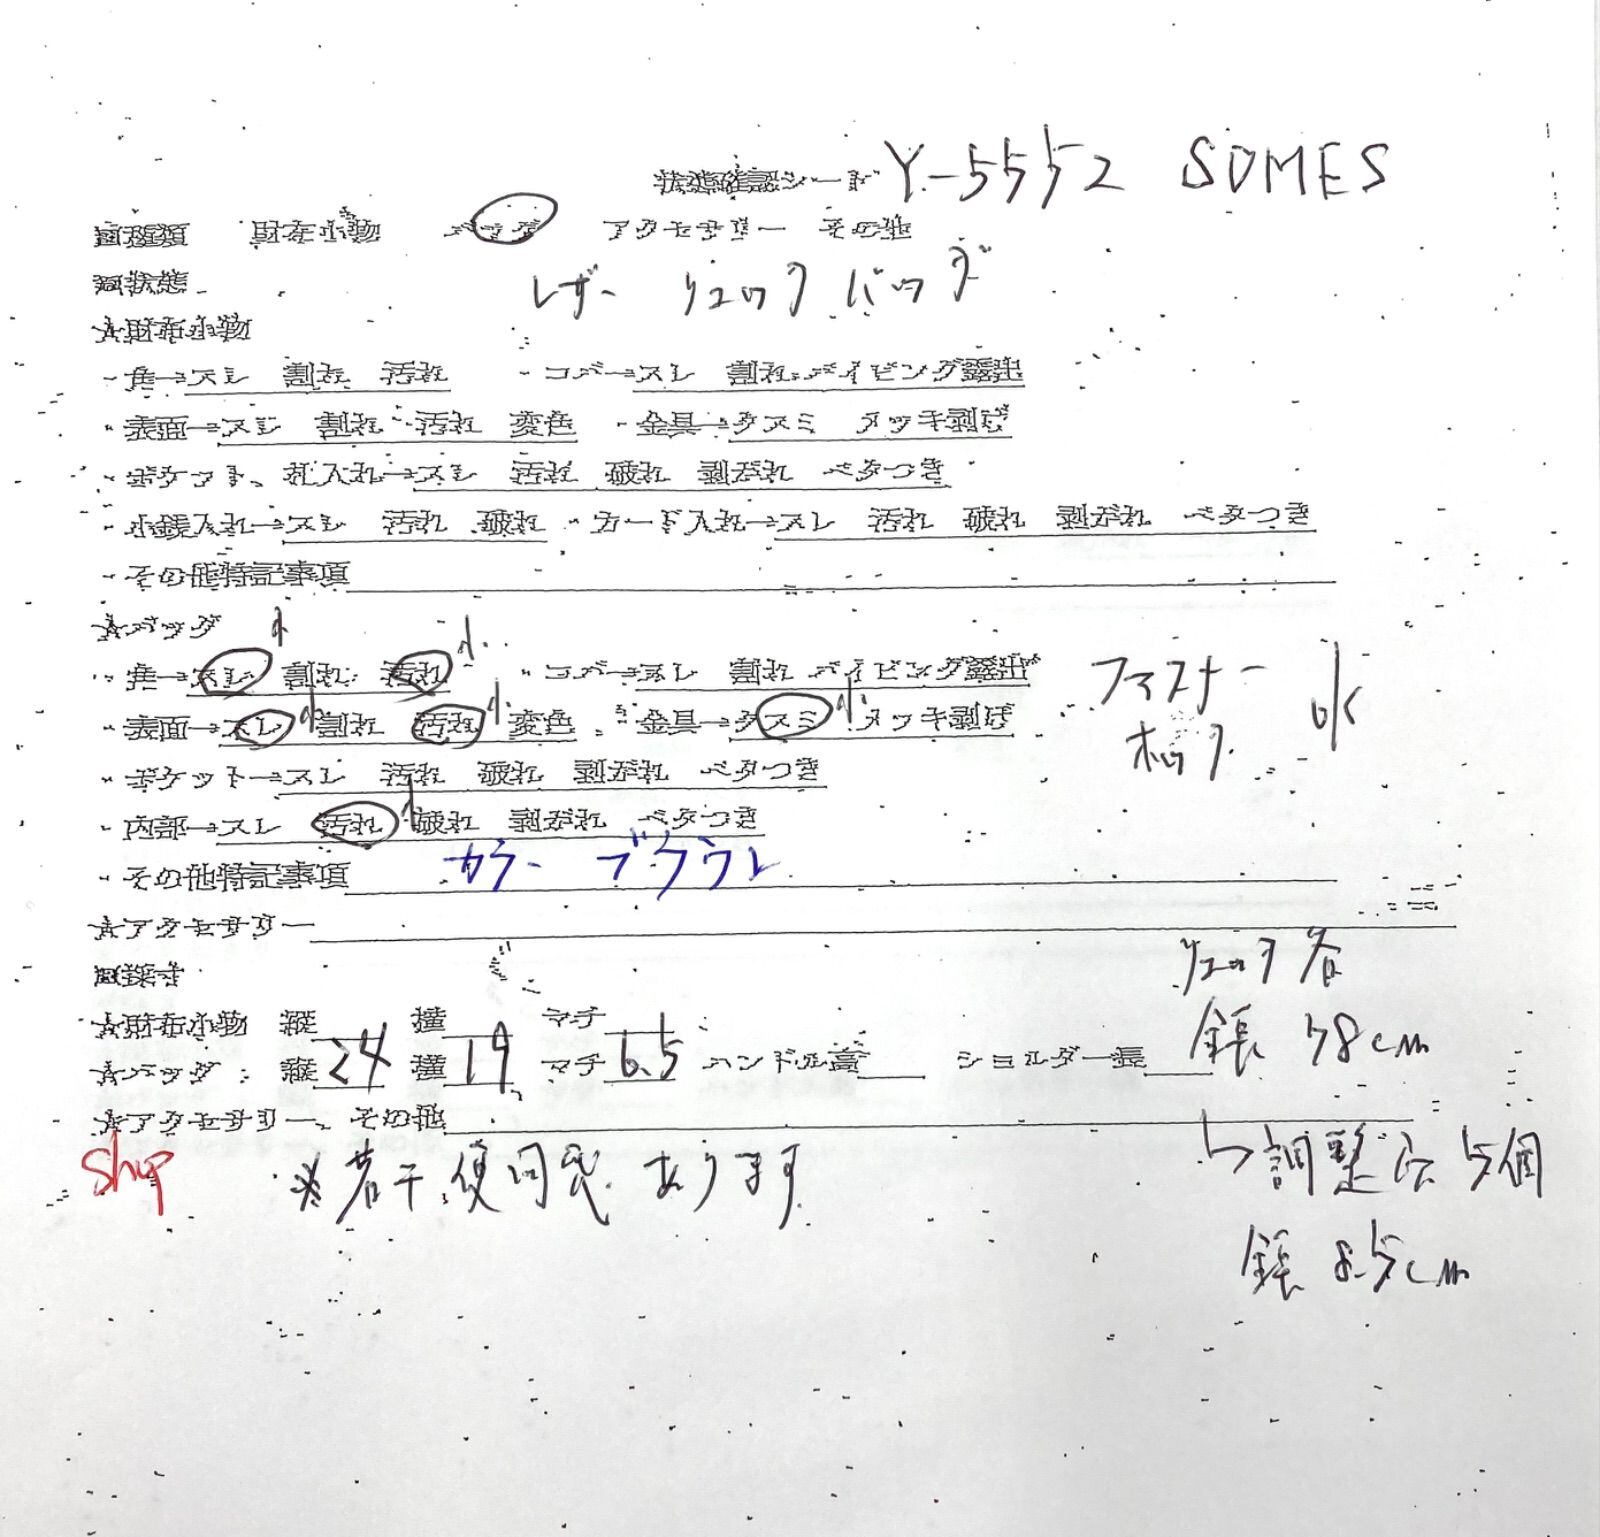 状態確認シート Y-5552 SOMES
■種類 財布小物 バッグ アクセサリー その他
■状態 レザー リュックバッグ
☆財布小物
・角→スレ 割れ 汚れ ・コバ→スレ 割れ パイピング露出
・表面→スレ 割れ 汚れ 変色 ・金具→クスミ メッキ剥げ
・ポケット、札入れ→スレ 汚れ 破れ 剥がれ ベタつき
・小銭入れ→スレ 汚れ 破れ ・カード入れ→スレ 汚れ 破れ 剥がれ ベタつき
・その他特記事項
☆バッグ
・角→スレ 小 割れ 汚れ 小 ・コバ→スレ 割れ パイピング露出 ファスナー
・表面→スレ 小 割れ 汚れ 小 変色 ・金具→クスミ 小 メッキ剥げ ホック ok
・ポケット→スレ 汚れ 破れ 剥がれ ベタつき
・内部→スレ 汚れ 小 破れ 剥がれ ベタつき
・その他特記事項 カラー ブラウン
☆アクセサリー
■採寸 リュック
☆財布小物 縦 横 マチ
☆バッグ 縦24 横19 マチ6.5 ハンドル高 ショルダー長 78cm
☆アクセサリー、その他
Shop ※若干使用感あります 調整 5個
8.5cm